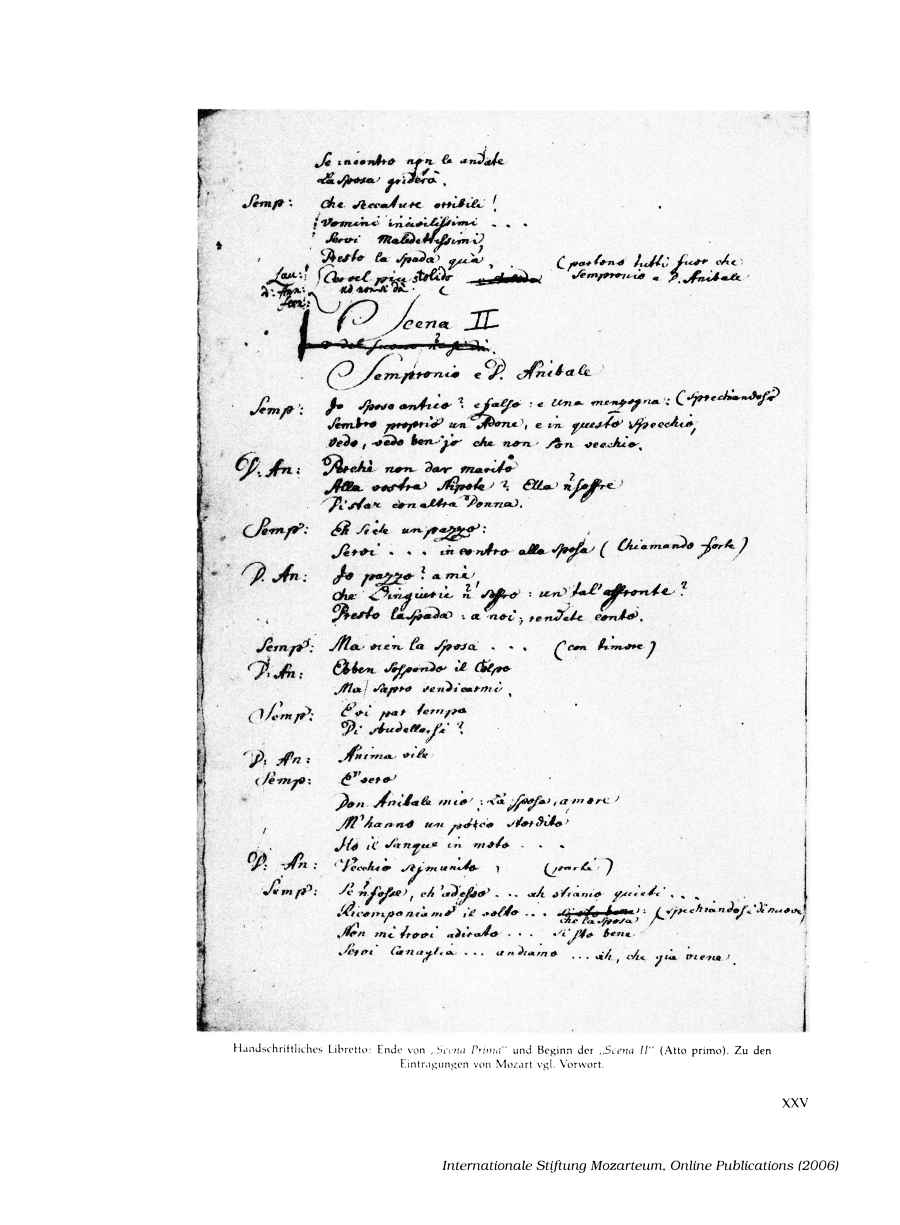 Se incontro non le andate
La Sposa griderà.
Semp: Che seccature orribili!
Uomini incivilissimi . . .
Servi Maledettissimi,
Presto la Spada quà, (partono tutti fuor che
Sempronio e D. Anibale
Lau:
D: An:
Cervel più stolido
nò non si dà.
Scena II
Sempronio e D. Anibale
Semp: Io sposo antico? e falso: e una menzogna: (Specchiandosi
Sembro proprio un Adone, e in questo Specchio,
Vedo, vedo ben io che non son vecchio.
D. An: Perchè non dar marito
Alla vostra Nipote? Ella ñ soffre
Di star con altra Donna.
Semp: Eh siete un pazzo:
Servi . . . incontro alla sposa (Chiamando forte)
D. An: Io pazzo? a me,
che l'ingiurie ñ soffro: un tal'affronte?
Presto la Spada: a noi, rendete conto.
Semp: Ma vien la Sposa . . . (con timore)
D. An: Ebben Sospendo il Colpo
Ma sapro vendicarmi.
Semp: E voi per tempo
D. An: Anima vile
Semp: E' vero
Don Anibale mio: La Sposa, amore
M'hanno un pòco stordito
Ho il Sangue in moto . . .
D. An: Vecchio sejmunito, (parte)
Semp: Se ñ fosse, ch'adesso ... ah stiamo quieti . . .
Ricomponiamo il volto ... che la Sposa (specchiandosi di nuovo)
Non mi trovi adirato ... si sto bene
Servi Canaglia ... andiamo ... ah, che già viene.
Handschriftliches Libretto: Ende von „Scena Prima" und Beginn der „Scena II" (Atto primo). Zu den
Eintragungen von Mozart vgl. Vorwort.
XXV
Internationale Stiftung Mozarteum, Online Publications (2006)